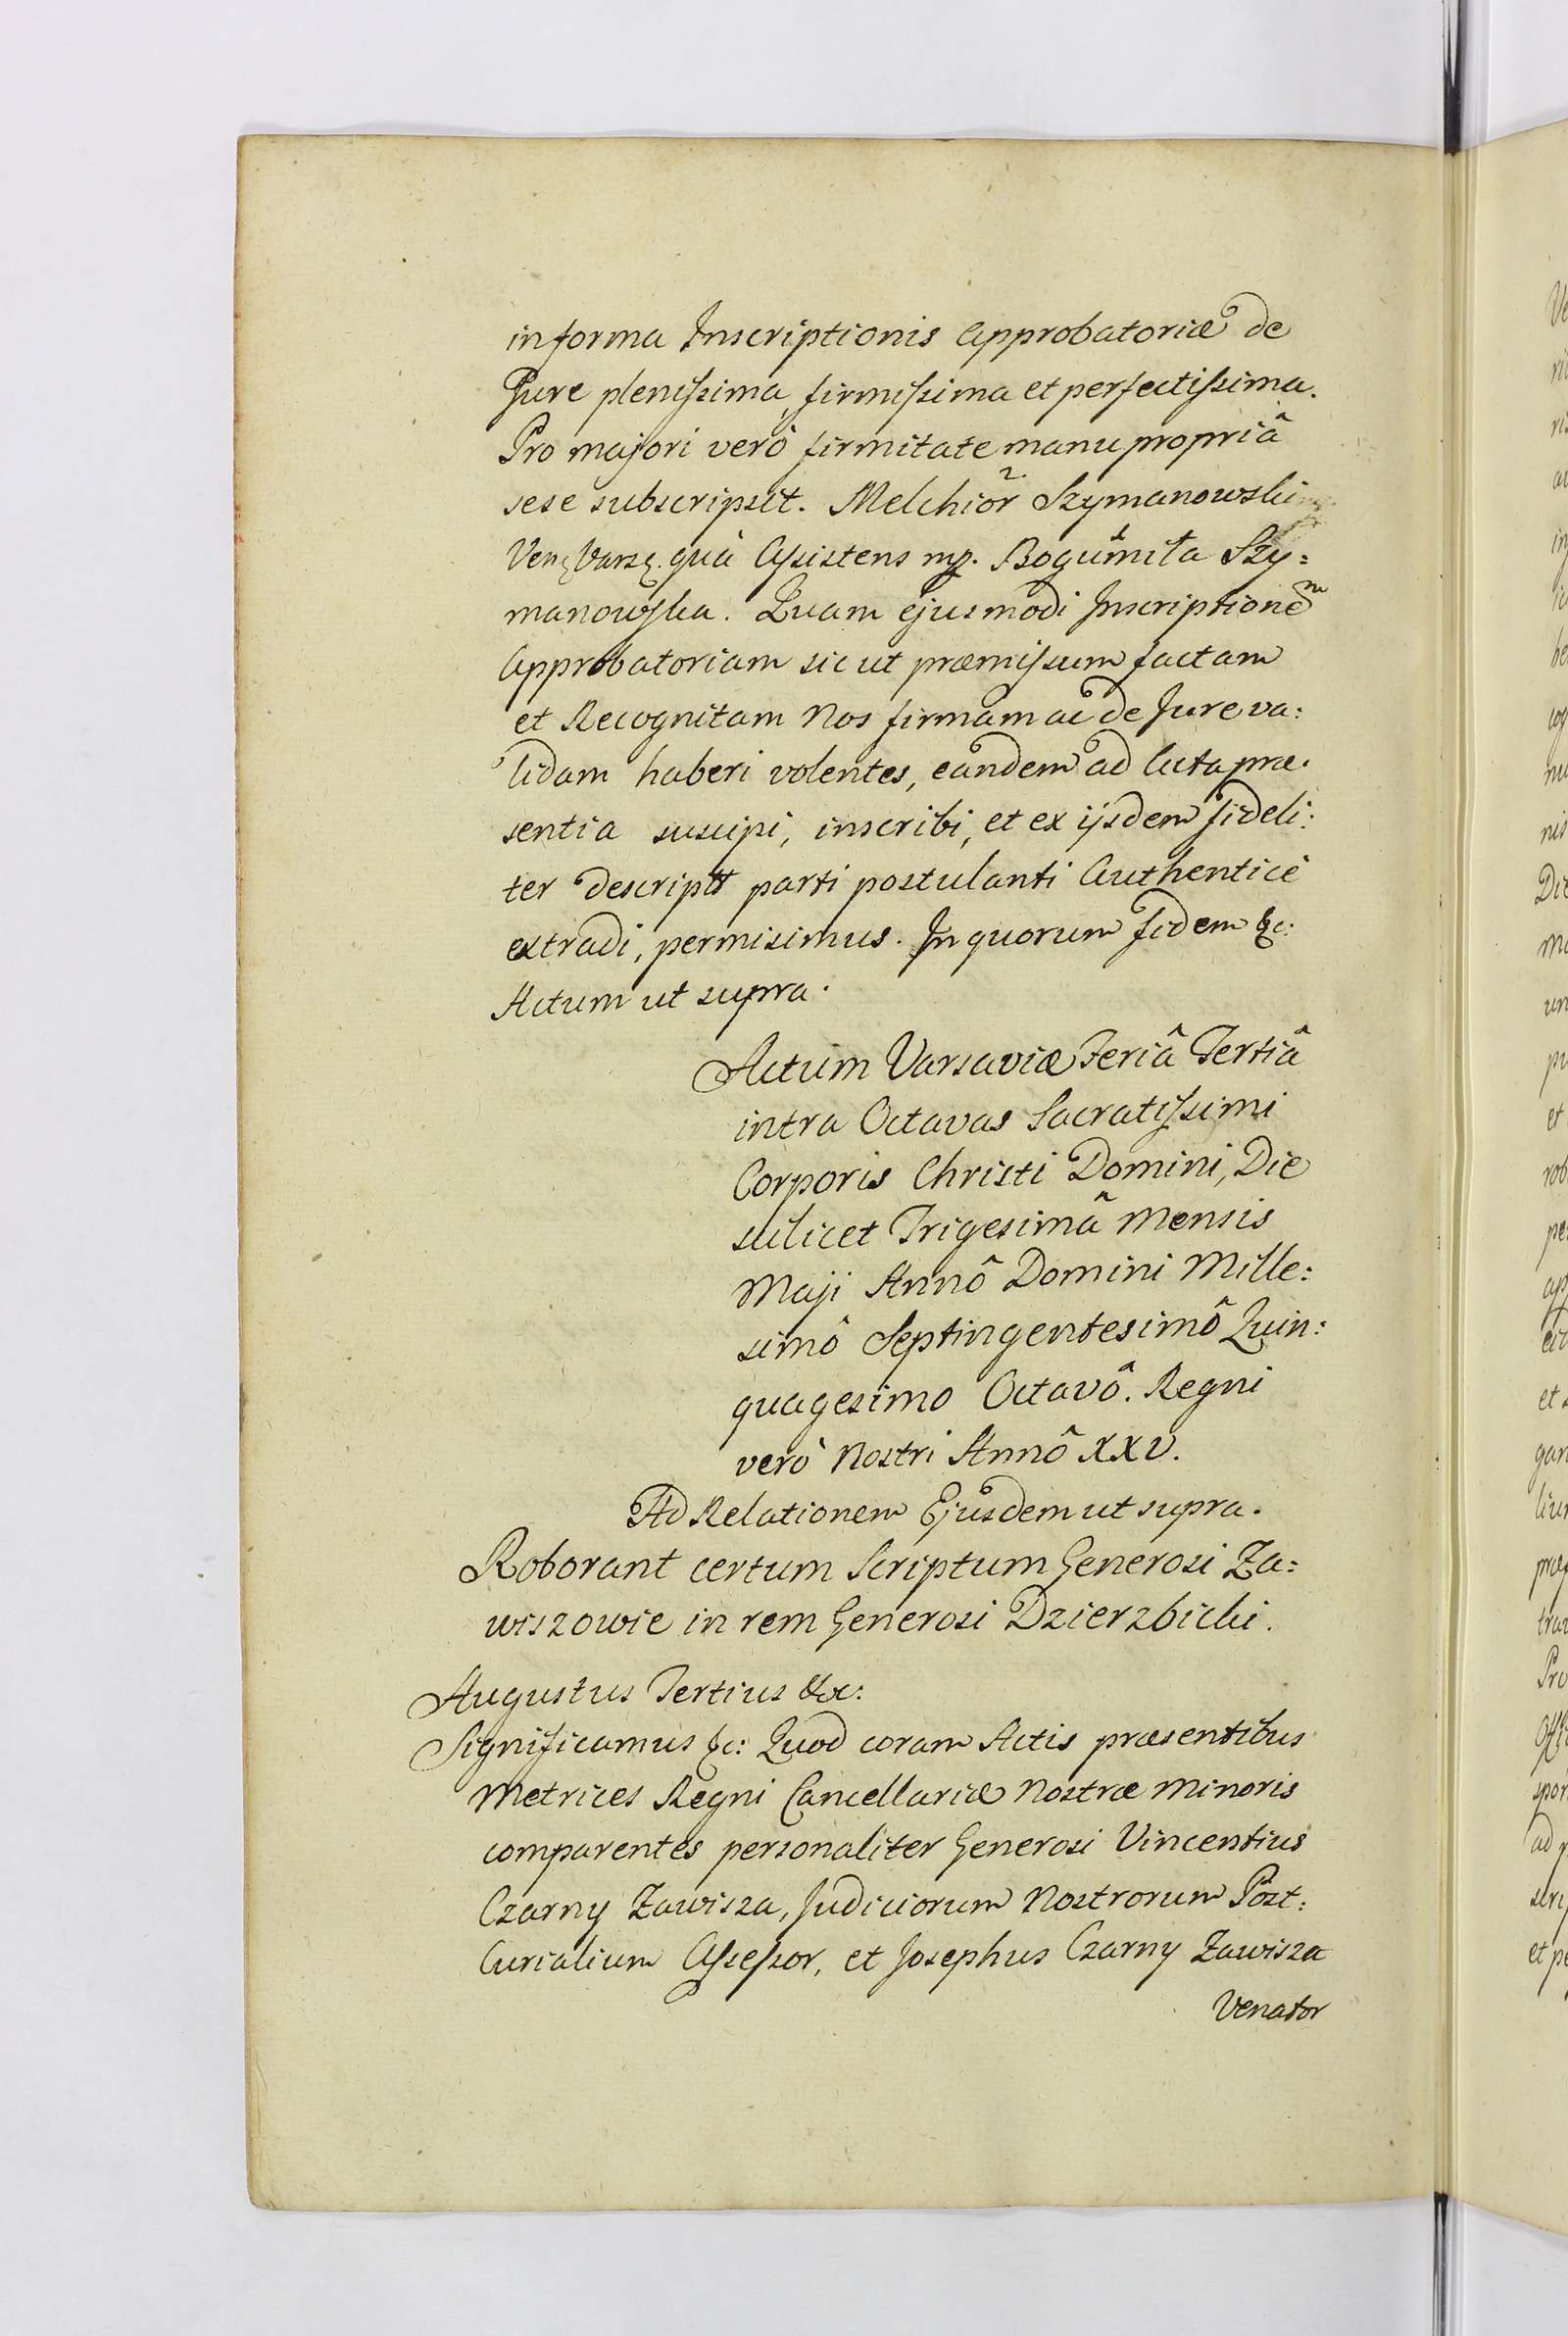 in forma Inscriptionis Approbatoriæ de
Jure plenissima, firmissima et perfectissima.
Pro majori verò firmitate manu propriâ
sese subscripsit. Melchior Szymanowski
Ven: Vars: quà Assistens mp. Bogumiła Szy:
manowska. Quam ejusmodi Inscriptionem
Approbatoriam sicut præmissum factam
et Recognitam Nos firmam ac de Jure va:
lidam haberi volentes, eandem ad Acta præ:
sentia suscipi, inscribi, et ex ijsdem fideli:
ter descript parti postulanti Authenticè
extradi, permisimus. In quorum fidem &c:
Actum ut supra.
Actum Varsaviæ Feriâ Tertiâ
intra Octavas Sacratissimi
Corporis Christi Domini, Die
scilicet Trigesimâ Mensis
Maji Annô Domini Mille:
simô Septingentesimô Quin:
quagesimo Octavô. Regni
verò Nostri Annô XXV.
Ad Relationem Ejusdem ut supra.
Roborant certum Scriptum Generosi Za:
wiszowie in rem Generosi Dzierzbicki.
Augustus Tertius &c:
Significamus &c: Quod coram Actis præsentibus
Metrices Regni Cancellariæ Nostræ Minoris
comparentes personaliter Generosi Vincentius
Czarny Zawisza, Judiciorum Nostrorum Post:
Curialium Assessor, et Josephus Czarny Zawisza
Venator